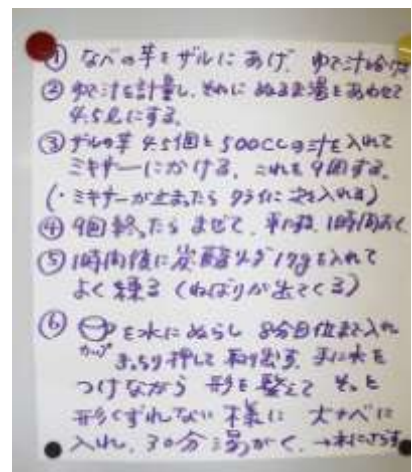 ① なべの芋をザルにあげ、ゆで汁も
② ゆで汁を計量し、それに ぬるま湯をあわせて
4.5ℓにする。
③ ザルの芋 4.5個と500ccの汁を入れて
ミキサーにかける。これを9回する。
(・ミキサーが止まったら
④ 9回終ったら まぜて、平に 1時間おく
⑤ 1時間後に炭酸ソーダ17gを入れて
よく練る(ねばりが出てくる)
⑥ カップ を水にぬらし 8分目位まで入れ
押して 取り出す。手に水を
つけながら 形を整えて そっと
形くずれない様に 大ナベに
入れ、30分湯がく。→水にさらす